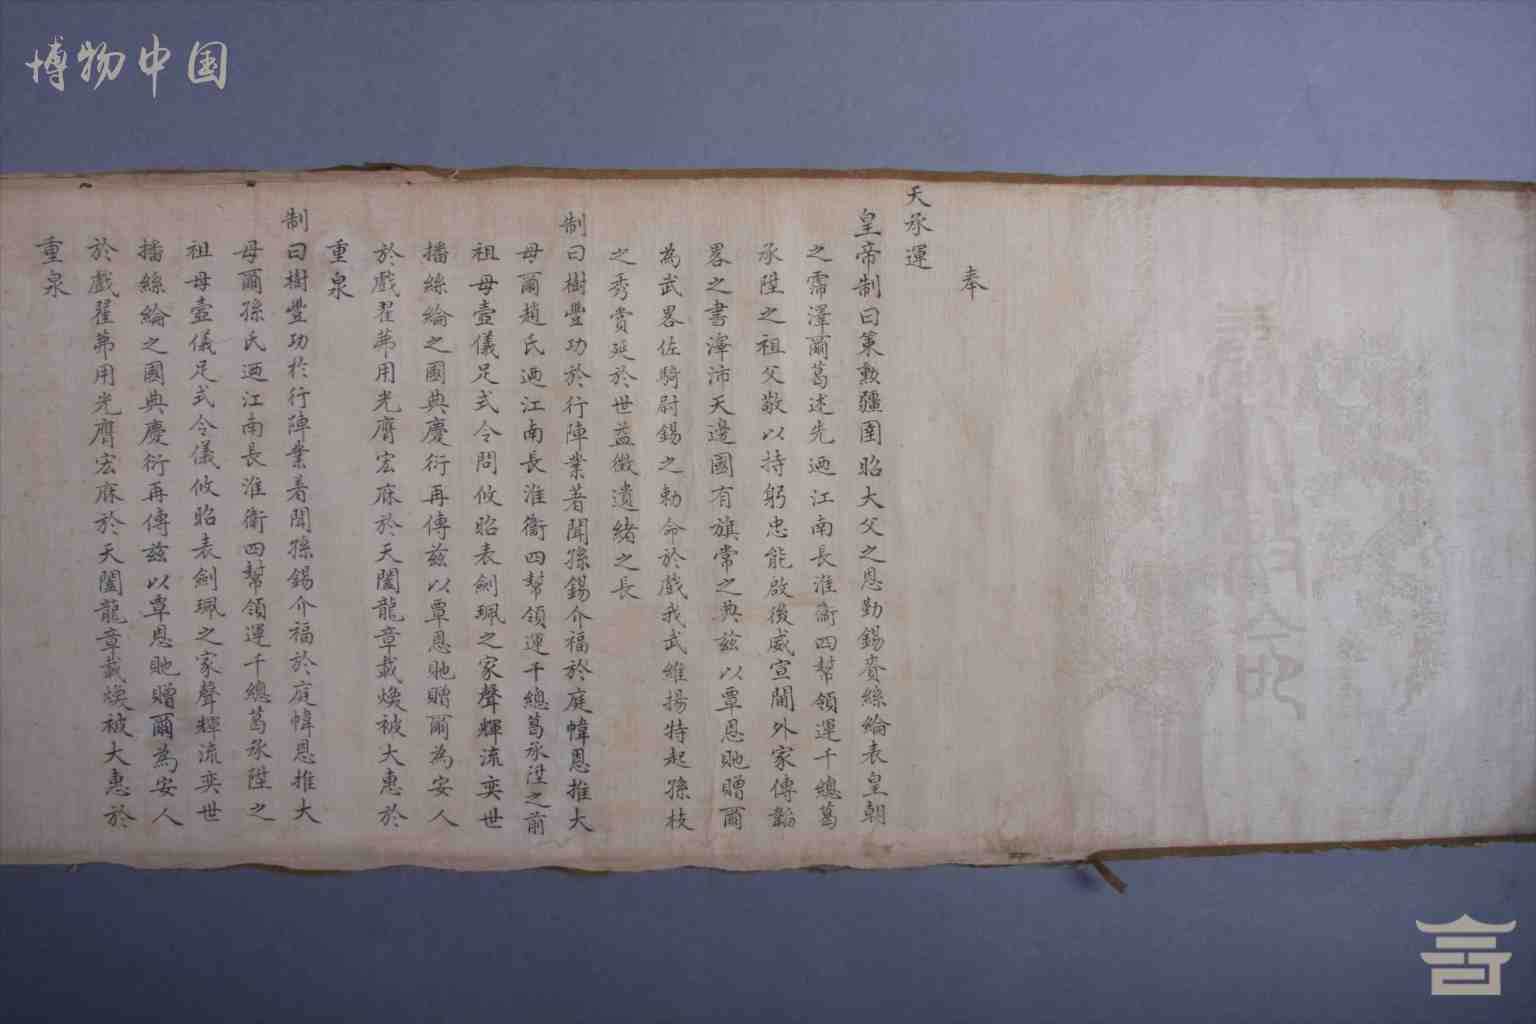 博物中国
奉
天承運
皇帝制曰策勲疆圉昭大父之恩勤錫賚絲綸表皇朝
之霈澤爾葛述先迺江南長淮衛四幫領運千總葛
承陞之祖父敬以持躬忠能啟後威宣閫外家傳韜
畧之書澤沛天邊國有旗常之典兹以覃恩貤贈爾
為武畧佐騎尉錫之勅命於戲我武維揚特起孫枝
之秀賞延於世益徵遺緒之長
制曰樹豐功於行陣業著聞孫錫介福於庭幃恩推大
母爾趙氏迺江南長淮衛四幫領運千總葛承陞之前
祖母壼儀足式令問攸昭表劍珮之家聲輝流奕世
播絲綸之國典慶衍再傳兹以覃恩貤贈爾為安人
於戲翟茀用光膺宏庥於天闔龍章載煥被大惠於
重泉
制曰樹豐功於行陣業著聞孫錫介福於庭幃恩推大
母爾孫氏迺江南長淮衛四幫領運千總葛承陞之
祖母壼儀足式令儀攸昭表劍珮之家聲輝流奕世
播絲綸之國典慶衍再傳兹以覃恩貤贈爾為安人
於戲翟茀用光膺宏庥於天闔龍章載煥被大惠於
重泉